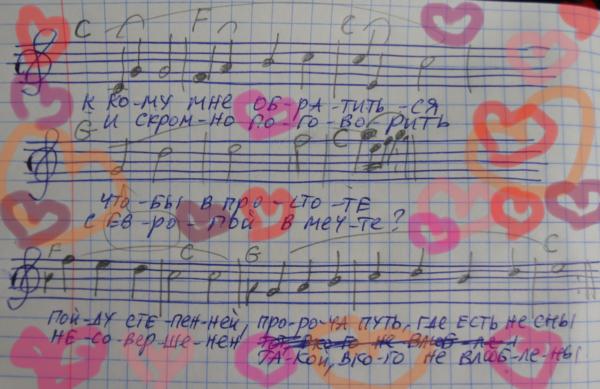 C F C
К КО-МУ МНЕ ОБ-РА-ТИТЬ-СЯ
И СКРОМ-НО ПО-ГО-ВО-РИТЬ
G C
ЧТО-БЫ В ПРО-СТО-ТЕ
С ЕВ-РО-ПОЙ В МЕЧ-ТЕ?
F C G C
ПОЙ-ДУ СТЕ-ПЕН-НЕЙ, ПРО-РО-ЧА ПУТЬ, ГДЕ ЕСТЬ НЕ СНЫ
НЕ-СО-ВЕР-ШЕ-НЕН НЕ ВЛЮБ-ЛЕ-
ТА-КОЙ, В КО-ГО НЕ ВЛЮБ-ЛЕ-НЫ